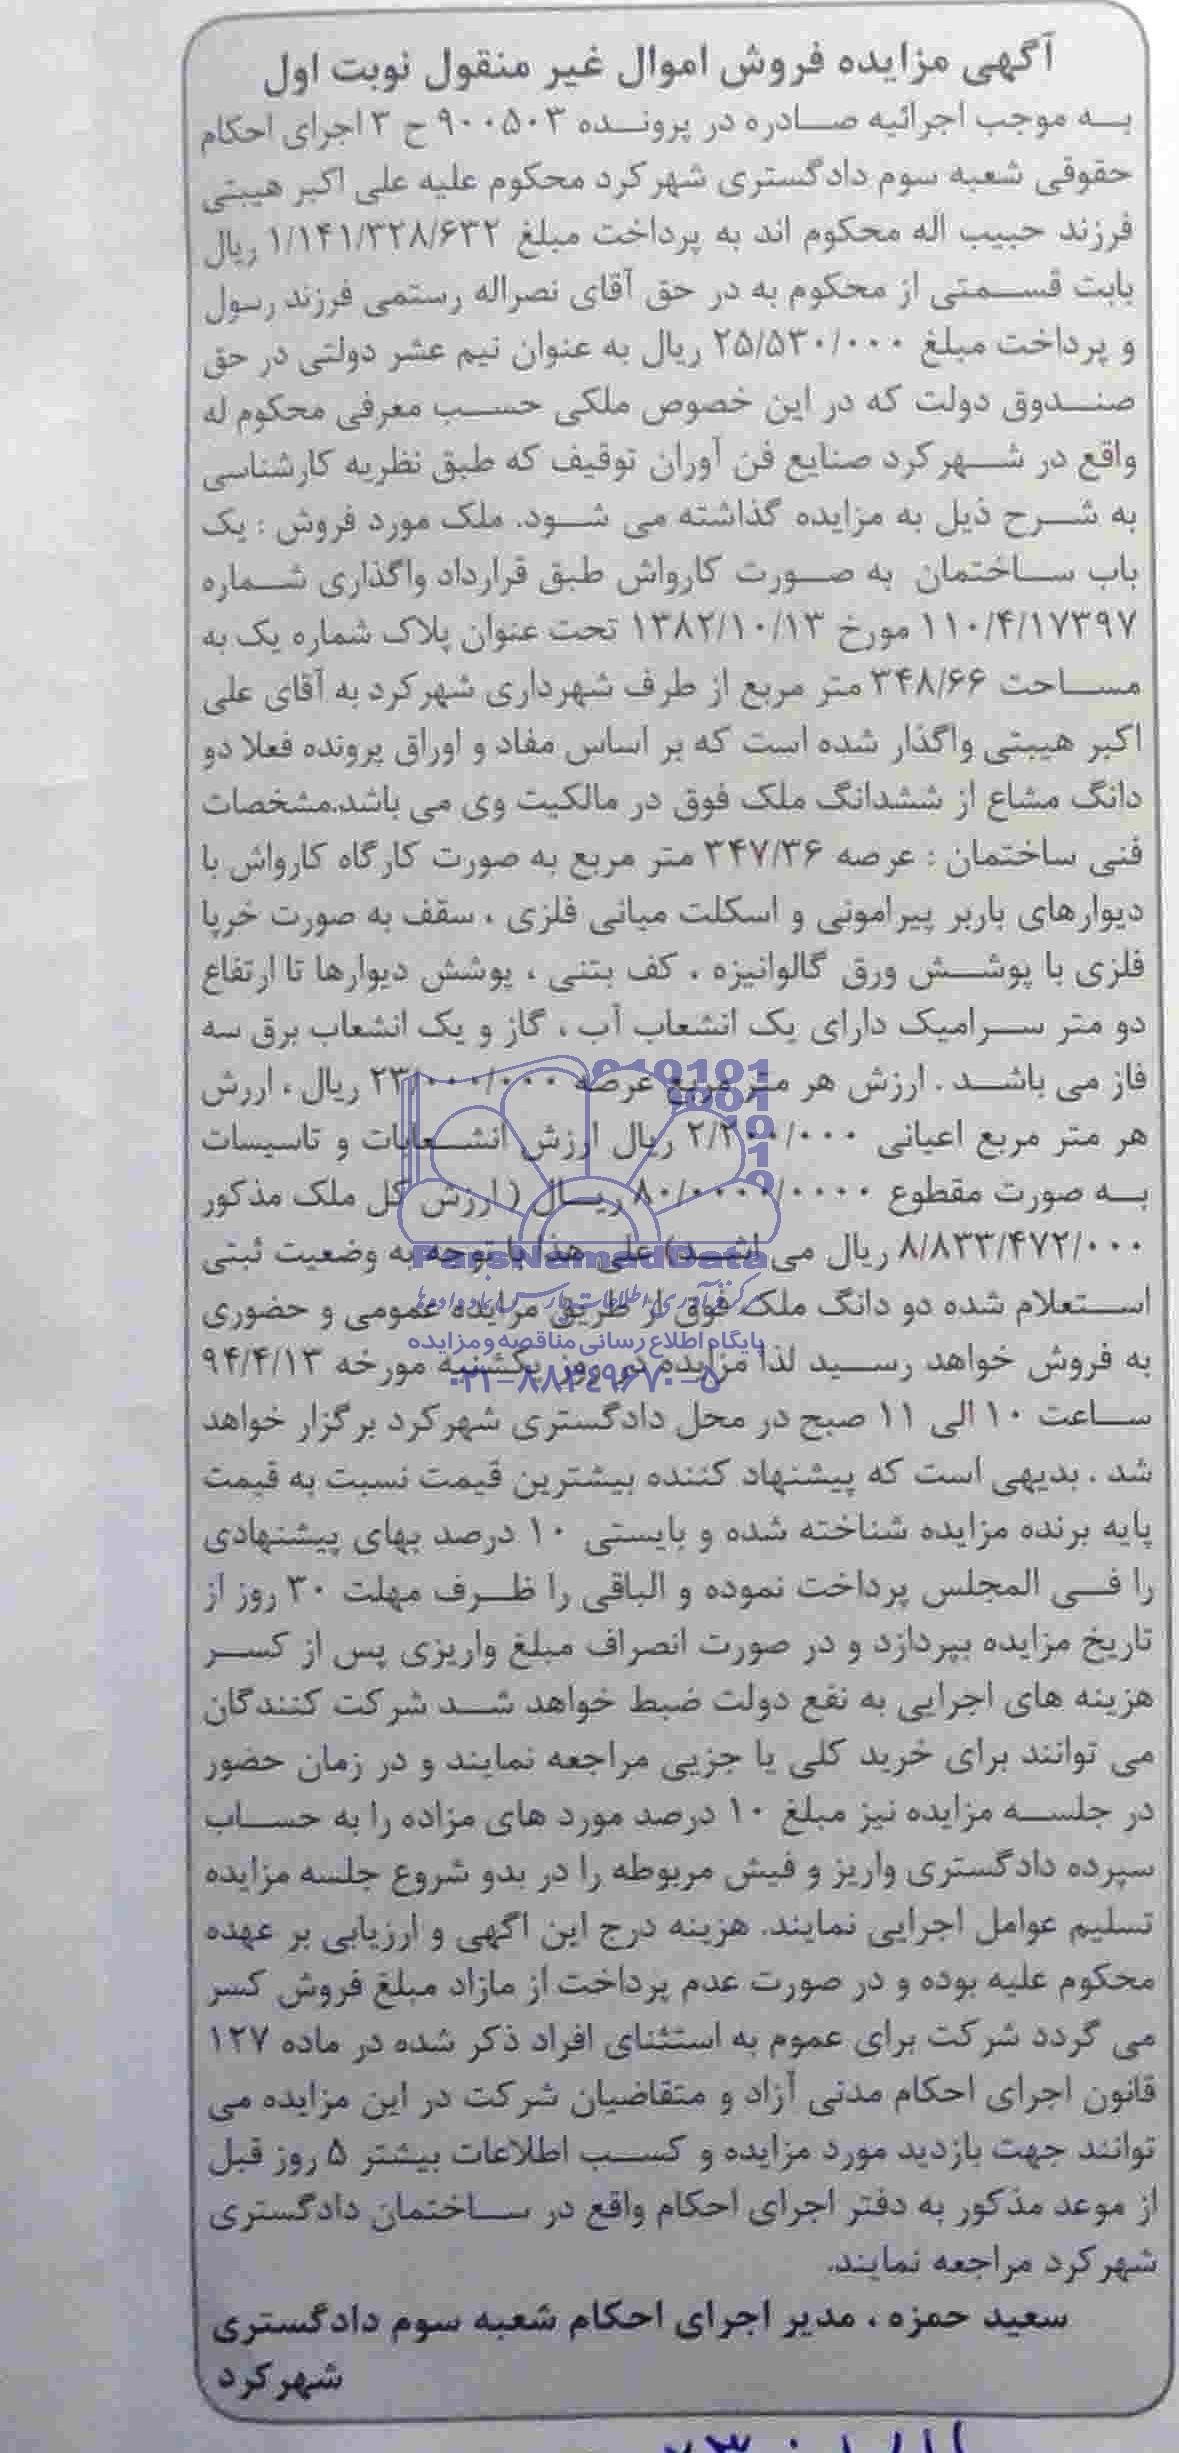 آگهی مزایده فروش اموال غیر منقول نوبت اول
به موجب اجرائیه صادره در پرونده ۹۰۰۵۰۳ ح ۳ اجرای احکام
حقوقی شعبه سوم دادگستری شهرکرد محکوم علیه علی اکبر هیبتی
فرزند حبیب اله محکوم اند به پرداخت مبلغ ۱/۱۴۱/۳۲۸/۶۳۲ ریال
بابت قسمتی از محکوم به در حق آقای نصراله رستمی فرزند رسول
و پرداخت مبلغ ۲۵/۵۳۰/۰۰۰ ریال به عنوان نیم عشر دولتی در حق
صندوق دولت که در این خصوص ملکی حسب معرفی محکوم له
واقع در شهرکرد صنایع فن آوران توقیف که طبق نظریه کارشناسی
به شرح ذیل به مزایده گذاشته می شود. ملک مورد فروش : یک
باب ساختمان به صورت کارواش طبق قرارداد واگذاری شماره
۱۱۰/۴/۱۷۳۹۷ مورخ ۱۳۸۲/۱۰/۱۳ تحت عنوان پلاک شماره یک به
مساحت ۳۴۸/۶۶ متر مربع از طرف شهرداری شهرکرد به آقای علی
اکبر هیبتی واگذار شده است که بر اساس مفاد و اوراق پرونده فعلا دو
دانگ مشاع از ششدانگ ملک فوق در مالکیت وی می باشد.مشخصات
فنی ساختمان : عرصه ۳۴۷/۳۶ متر مربع به صورت کارگاه کارواش با
دیوارهای باربر پیرامونی و اسکلت میانی فلزی ، سقف به صورت خرپا
فلزی با پوشش ورق گالوانیزه ، کف بتنی ، پوشش دیوارها تا ارتفاع
دو متر سرامیک دارای یک انشعاب آب ، گاز و یک انشعاب برق سه
فاز می باشد . ارزش هر متر مربع عرصه ۲۳/۰۰۰/۰۰۰ ریال ، ارزش
هر متر مربع اعیانی ۲/۲۰۰/۰۰۰ ریال ارزش انشعابات و تاسیسات
به صورت مقطوع ۸۰/۰۰۰۰/۰۰۰۰ ریال ( ارزش کل ملک مذکور
۸/۸۳۳/۴۷۲/۰۰۰ ریال می باشد) علی هذا با توجه به وضعیت ثبتی
ParsNamadData
استعلام شده دو دانگ ملک فوق از طریق مزایده عمومی و حضوری
مرکز فرآوری اطلاعات پارس نماد داده ها
پایگاه اطلاع رسانی مناقصه و مزایده
به فروش خواهد رسید لذا مزایده در روز یکشنبه مورخه ۹۴/۴/۱۳
۰۲۱-۸۸۳۴۹۶۷۰-۵
ساعت ۱۰ الی ۱۱ صبح در محل دادگستری شهرکرد برگزار خواهد
شد . بدیهی است که پیشنهاد کننده بیشترین قیمت نسبت به قیمت
پایه برنده مزایده شناخته شده و بایستی ۱۰ درصد بهای پیشنهادی
را فی المجلس پرداخت نموده و الباقی را ظرف مهلت ۳۰ روز از
تاریخ مزایده بپردازد و در صورت انصراف مبلغ واریزی پس از کسر
هزینه های اجرایی به نفع دولت ضبط خواهد شد شرکت کنندگان
می توانند برای خرید کلی یا جزیی مراجعه نمایند و در زمان حضور
در جلسه مزایده نیز مبلغ ۱۰ درصد مورد های مزاده را به حساب
سپرده دادگستری واریز و فیش مربوطه را در بدو شروع جلسه مزایده
تسلیم عوامل اجرایی نمایند. هزینه درج این اگهی و ارزیابی بر عهده
محکوم علیه بوده و در صورت عدم پرداخت از مازاد مبلغ فروش کسر
می گردد شرکت برای عموم به استثنای افراد ذکر شده در ماده ۱۲۷
قانون اجرای احکام مدنی آزاد و متقاضیان شرکت در این مزایده می
توانند جهت بازدید مورد مزایده و کسب اطلاعات بیشتر ۵ روز قبل
از موعد مذکور به دفتر اجرای احکام واقع در ساختمان دادگستری
شهرکرد مراجعه نمایند.
سعید حمزه ، مدیر اجرای احکام شعبه سوم دادگستری
شهرکرد